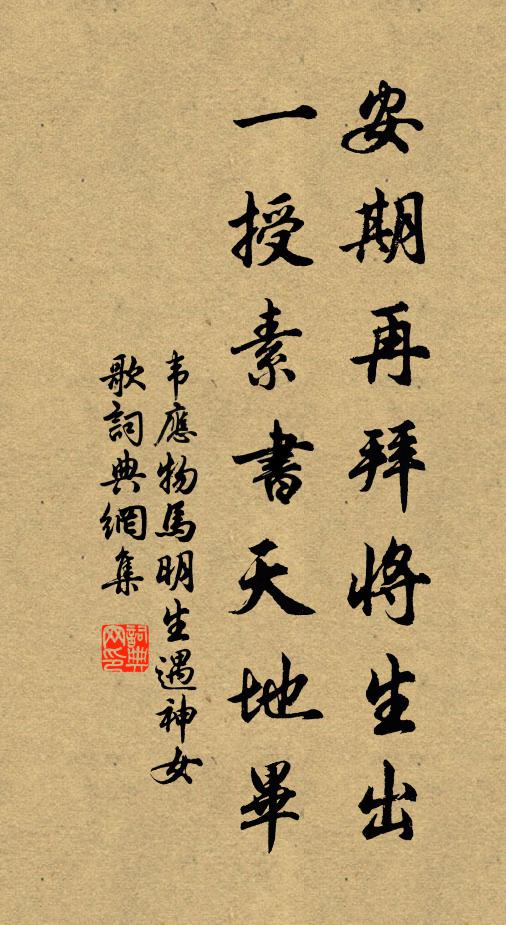 安期再拜將生出
一授素書天地畢
韦應物馬明生遇神女
歌詞典網集
詞典网印